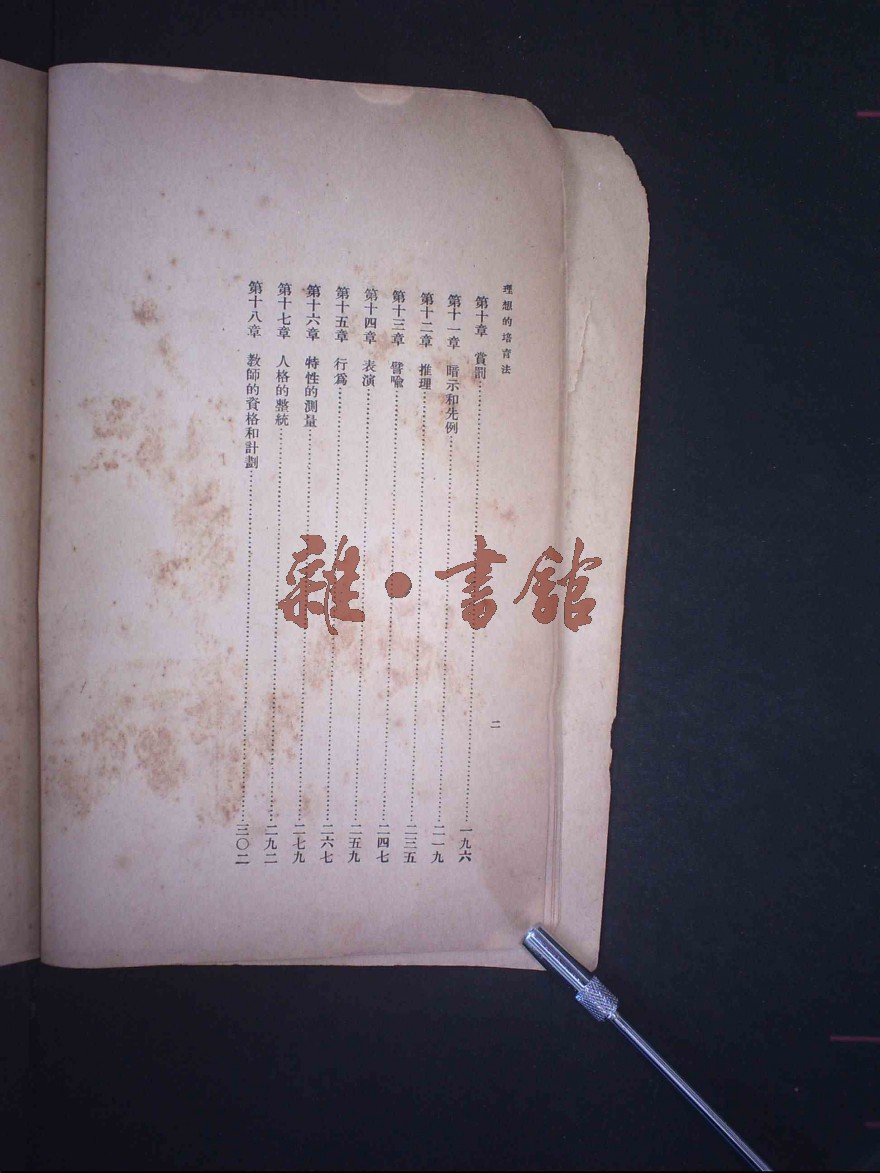 理想的培育法
二
第十章　賞罰……一九六
第十一章　暗示和先例……二一九
第十二章　推理……二三五
第十三章　譬喩……二四七
第十四章　表演……二五九
第十五章　行爲……二六七
第十六章　特性的測量……二七九
第十七章　人格的整統……二九二
第十八章　教師的資格和計劃……三〇二
雜·書館